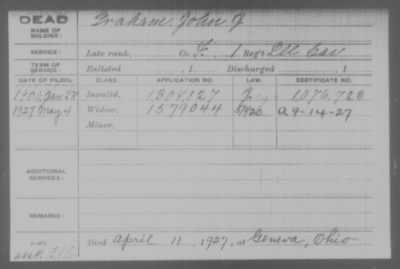 DEAD
NAME OF SOLDIER:
Graham, John J
SERVICE:
Late rank, Co. F, 1 Reg't Ill Cav
TERM OF SERVICE:
Enlisted , 1 Discharged , 1
DATE OF FILING. CLASS. APPLICATION NO. LAW. CERTIFICATE NO.
Invalid, 1308,127 1,076,723
1927 May 4 Widow, 1579044 A 9-14-27
Minor,
ADDITIONAL SERVICES:
REMARKS:
Died April 11, 1927, at Geneva, Ohio